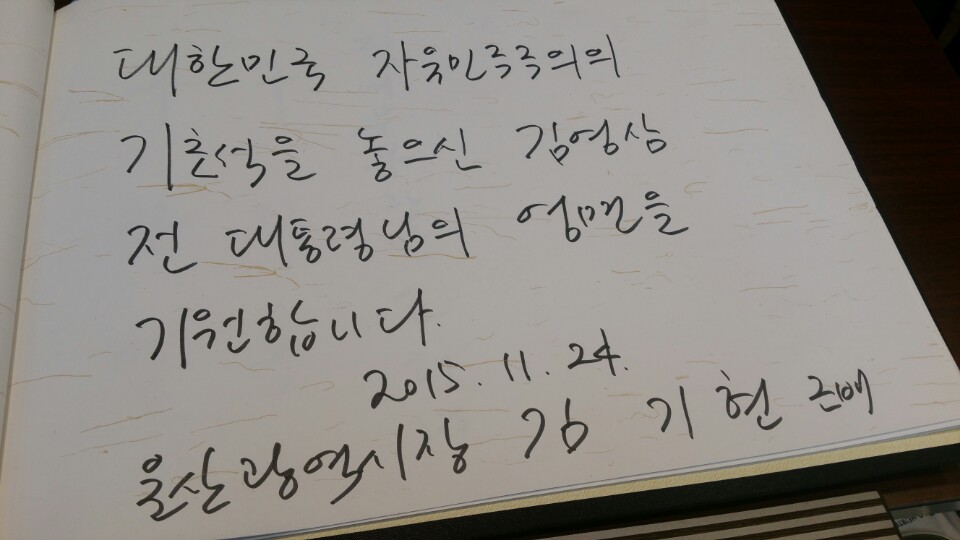 대한민국 자유민주주의의
기초석을 놓으신 김영삼
전 대통령님의 영면을
기원합니다.
2015. 11. 24.
울산광역시장 김 기 현 근배